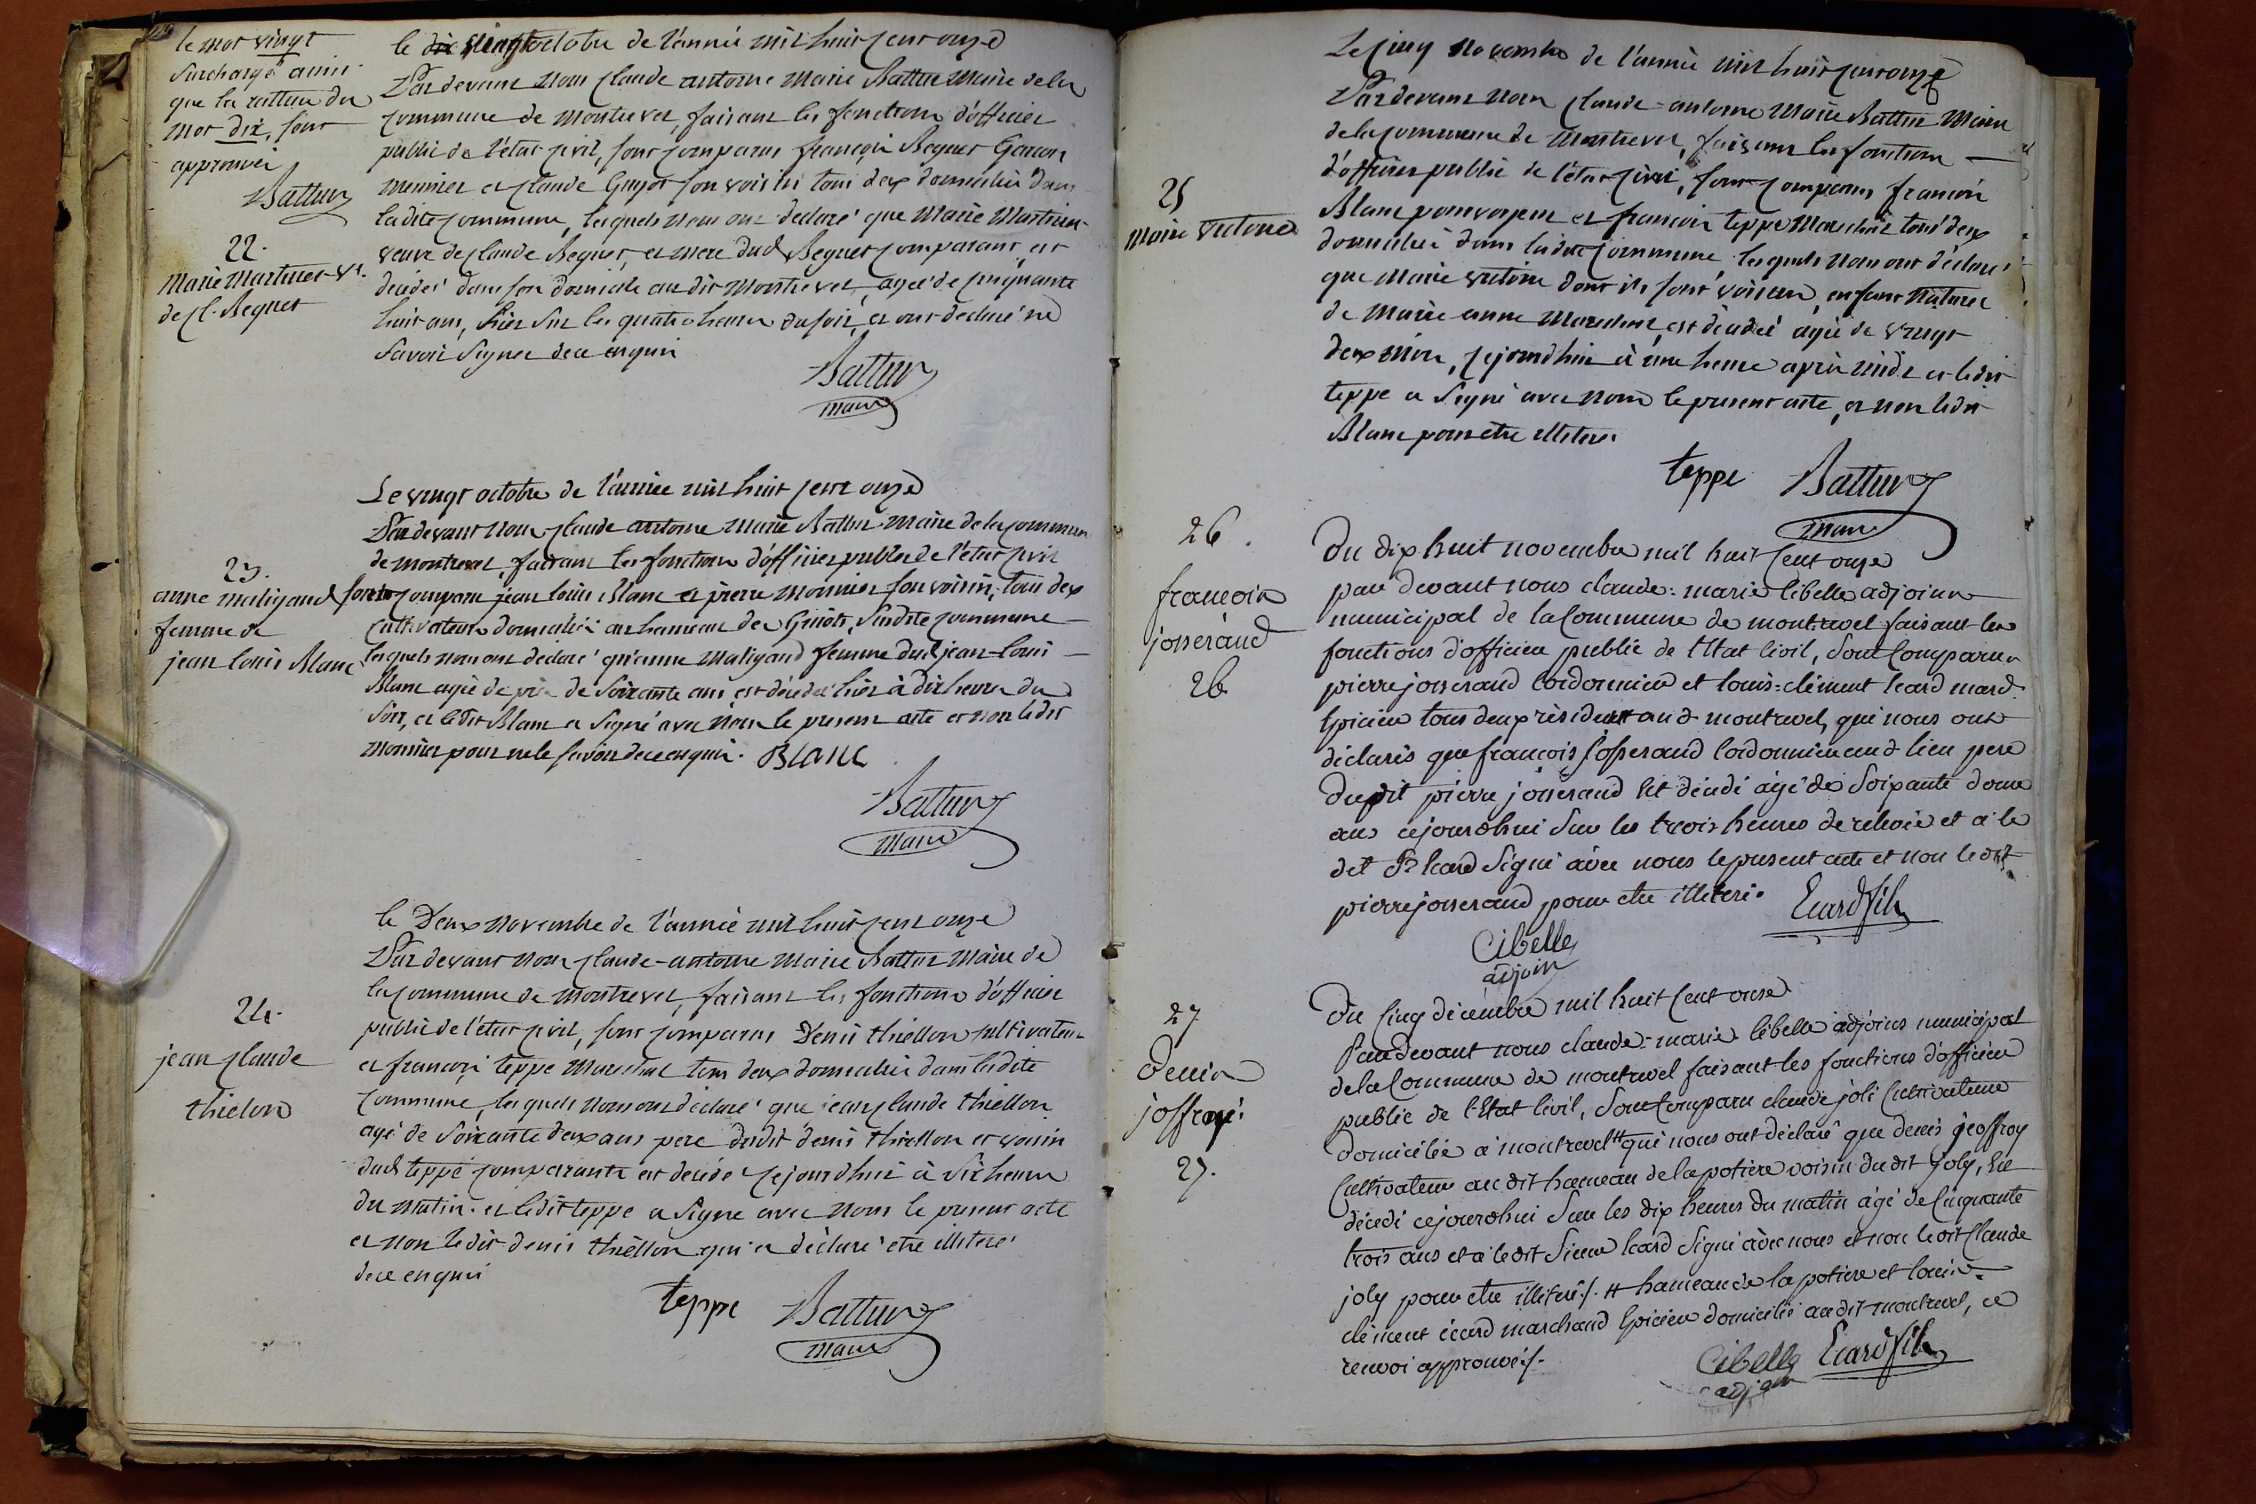 le mot vingt
surchargé ainsi
que la rature du
mot dix, sont
approuvés
Battur
22.
Marie Martinet Ve.
de Cl. Beguet
le dix vingt octobre de l'année mil huit cent onze
Pardevant nous Claude antoine Marie Battur Maire de la
commune de Montrevel, faisant les fonctions d'officier
public de l'état civil, sont comparus françois Beguet Garçon
meunier et Claude Guyot son voisin tous deux domiciliés dans
ladite commune, lesquels nous ont déclaré que Marie Martinet
veuve de Claude Beguet, et mere dud. Beguet comparant, est
décédée dans son domicile audit Montrevel, agée de cinquante
huit ans, hier sur les quatre heures du soir, et ont déclaré ne
savoir signer de ce enquis
Battur
maire
23.
anne maligand
femme de
jean louis Blanc
Le vingt octobre de l'année mil huit cent onze
Pardevant nous Claude antoine Marie Battur Maire de la commune
de montrevel, faisant les fonctions d'officier public de l'état civil
sont comparu jean louis Blanc et pierre monnier son voisin, tous deux
cultivateurs domiciliés au hameau des Guiots, susdite commune
lesquels nous ont déclaré qu'anne Maligand femme dud. jean-louis
Blanc agée de près de soixante ans est décédée hier à dix heures du
soir, et ledit Blanc a signé avec nous le présent acte et non ledit
monnier pour ne le savoir de ce enquis. Blanc
Battur
maire
24.
jean Claude
thiellon
le Deux novembre de l'année mil huit cent onze
Pardevant nous Claude-antoine Marie Battur Maire de
la commune de Montrevel, faisant les fonctions d'officier
public de l'état civil, sont comparus Denis thiellon cultivateur
et françois teppe Marechal tous deux domiciliés dans ladite
commune, lesquels nous ont déclaré que jean Claude thiellon
agé de soixante deux ans pere dudit denis thiellon et voisin
dud. teppe comparants est décédé cejourdhui à six heures
du matin. et ledit teppe a signé avec nous le présent acte
et non ledit denis thiellon qui a déclaré etre illiteré
de ce enquis
teppe Battur
maire
25
Marie victoire
Le cinq novembre de l'année mil huit cent onze
Pardevant nous Claude-antoine Marie Battur Maire
de la commune de Montrevel, faisant les fonctions
d'officier public de l'état civil, sont comparus françois
Blanc pourvoyeur et françois teppe Marechal tous deux
domiciliés dans ladite commune lesquels nous ont déclaré
que Marie victoire dont ils sont voisins, enfant naturel
de Marie anne Marechal, est décédée agée de vingt
deux mois, cejourdhui à une heure après midi et ledit
teppe a signé avec nous le présent acte, et non ledit
Blanc pour etre illiteré
teppe Battur
maire
26.
françois
josserand
26
Du dix huit novembre mil huit cent onze
par devant nous claude-marie Cibelle adjoint
municipal de la Commune de montrevel faisant les
fonctions d'officier public de l'Etat Civil, sont Comparu
pierre josserand Cordonnier et louis-clément Ecard mard
Epicier tous deux résident aud. montrevel, qui nous ont
déclarés que françois josserand Cordonnier aud. lieu pere
dudit pierre josserand est décédé agé de soixante douze
ans cejourdhui sur les trois heures de relevée et a le
dit Sr Ecard signé avec nous le présent acte et non ledit
pierre josserand pour etre illiteré.
Ecard fils
Cibelle
adjoint
27
Denis
joffray
27.
Du Cinq décembre mil huit Cent onze
Pardevant nous claude-marie Cibelle adjoint municipal
de la Commune de montrevel faisant les fonctions d'officier
public de l'Etat Civil, sont Comparu claude joli Cultivateur
domicilié à montrevel # qui nous ont déclaré que denis geoffroy
Cultivateur au dit hameau de la potiere voisin dudit joly, est
décédé cejourdhui sur les dix heures du matin agé de Cinquante
trois ans et a ledit sieur Ecard signé avec nous et non ledit Claude
joly pour etre illiteré. # hameau de la potiere et louis-
clément écard marchand Epicier domicilié audit montrevel, ce
renvoi approuvé.
Cibelle Ecard fils
adjoint